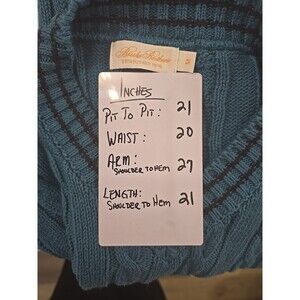 S
INCHES
PIT TO PIT: 21
WAIST: 20
ARM: 27
SHOULDER TO HEM
LENGTH: 21
SHOULDER TO HEM